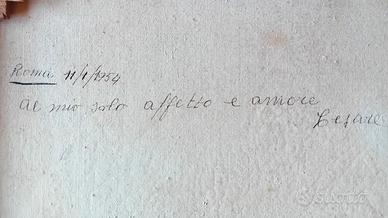 Roma 11/1/1954
Al mio solo affetto e amore
Cesare
subito